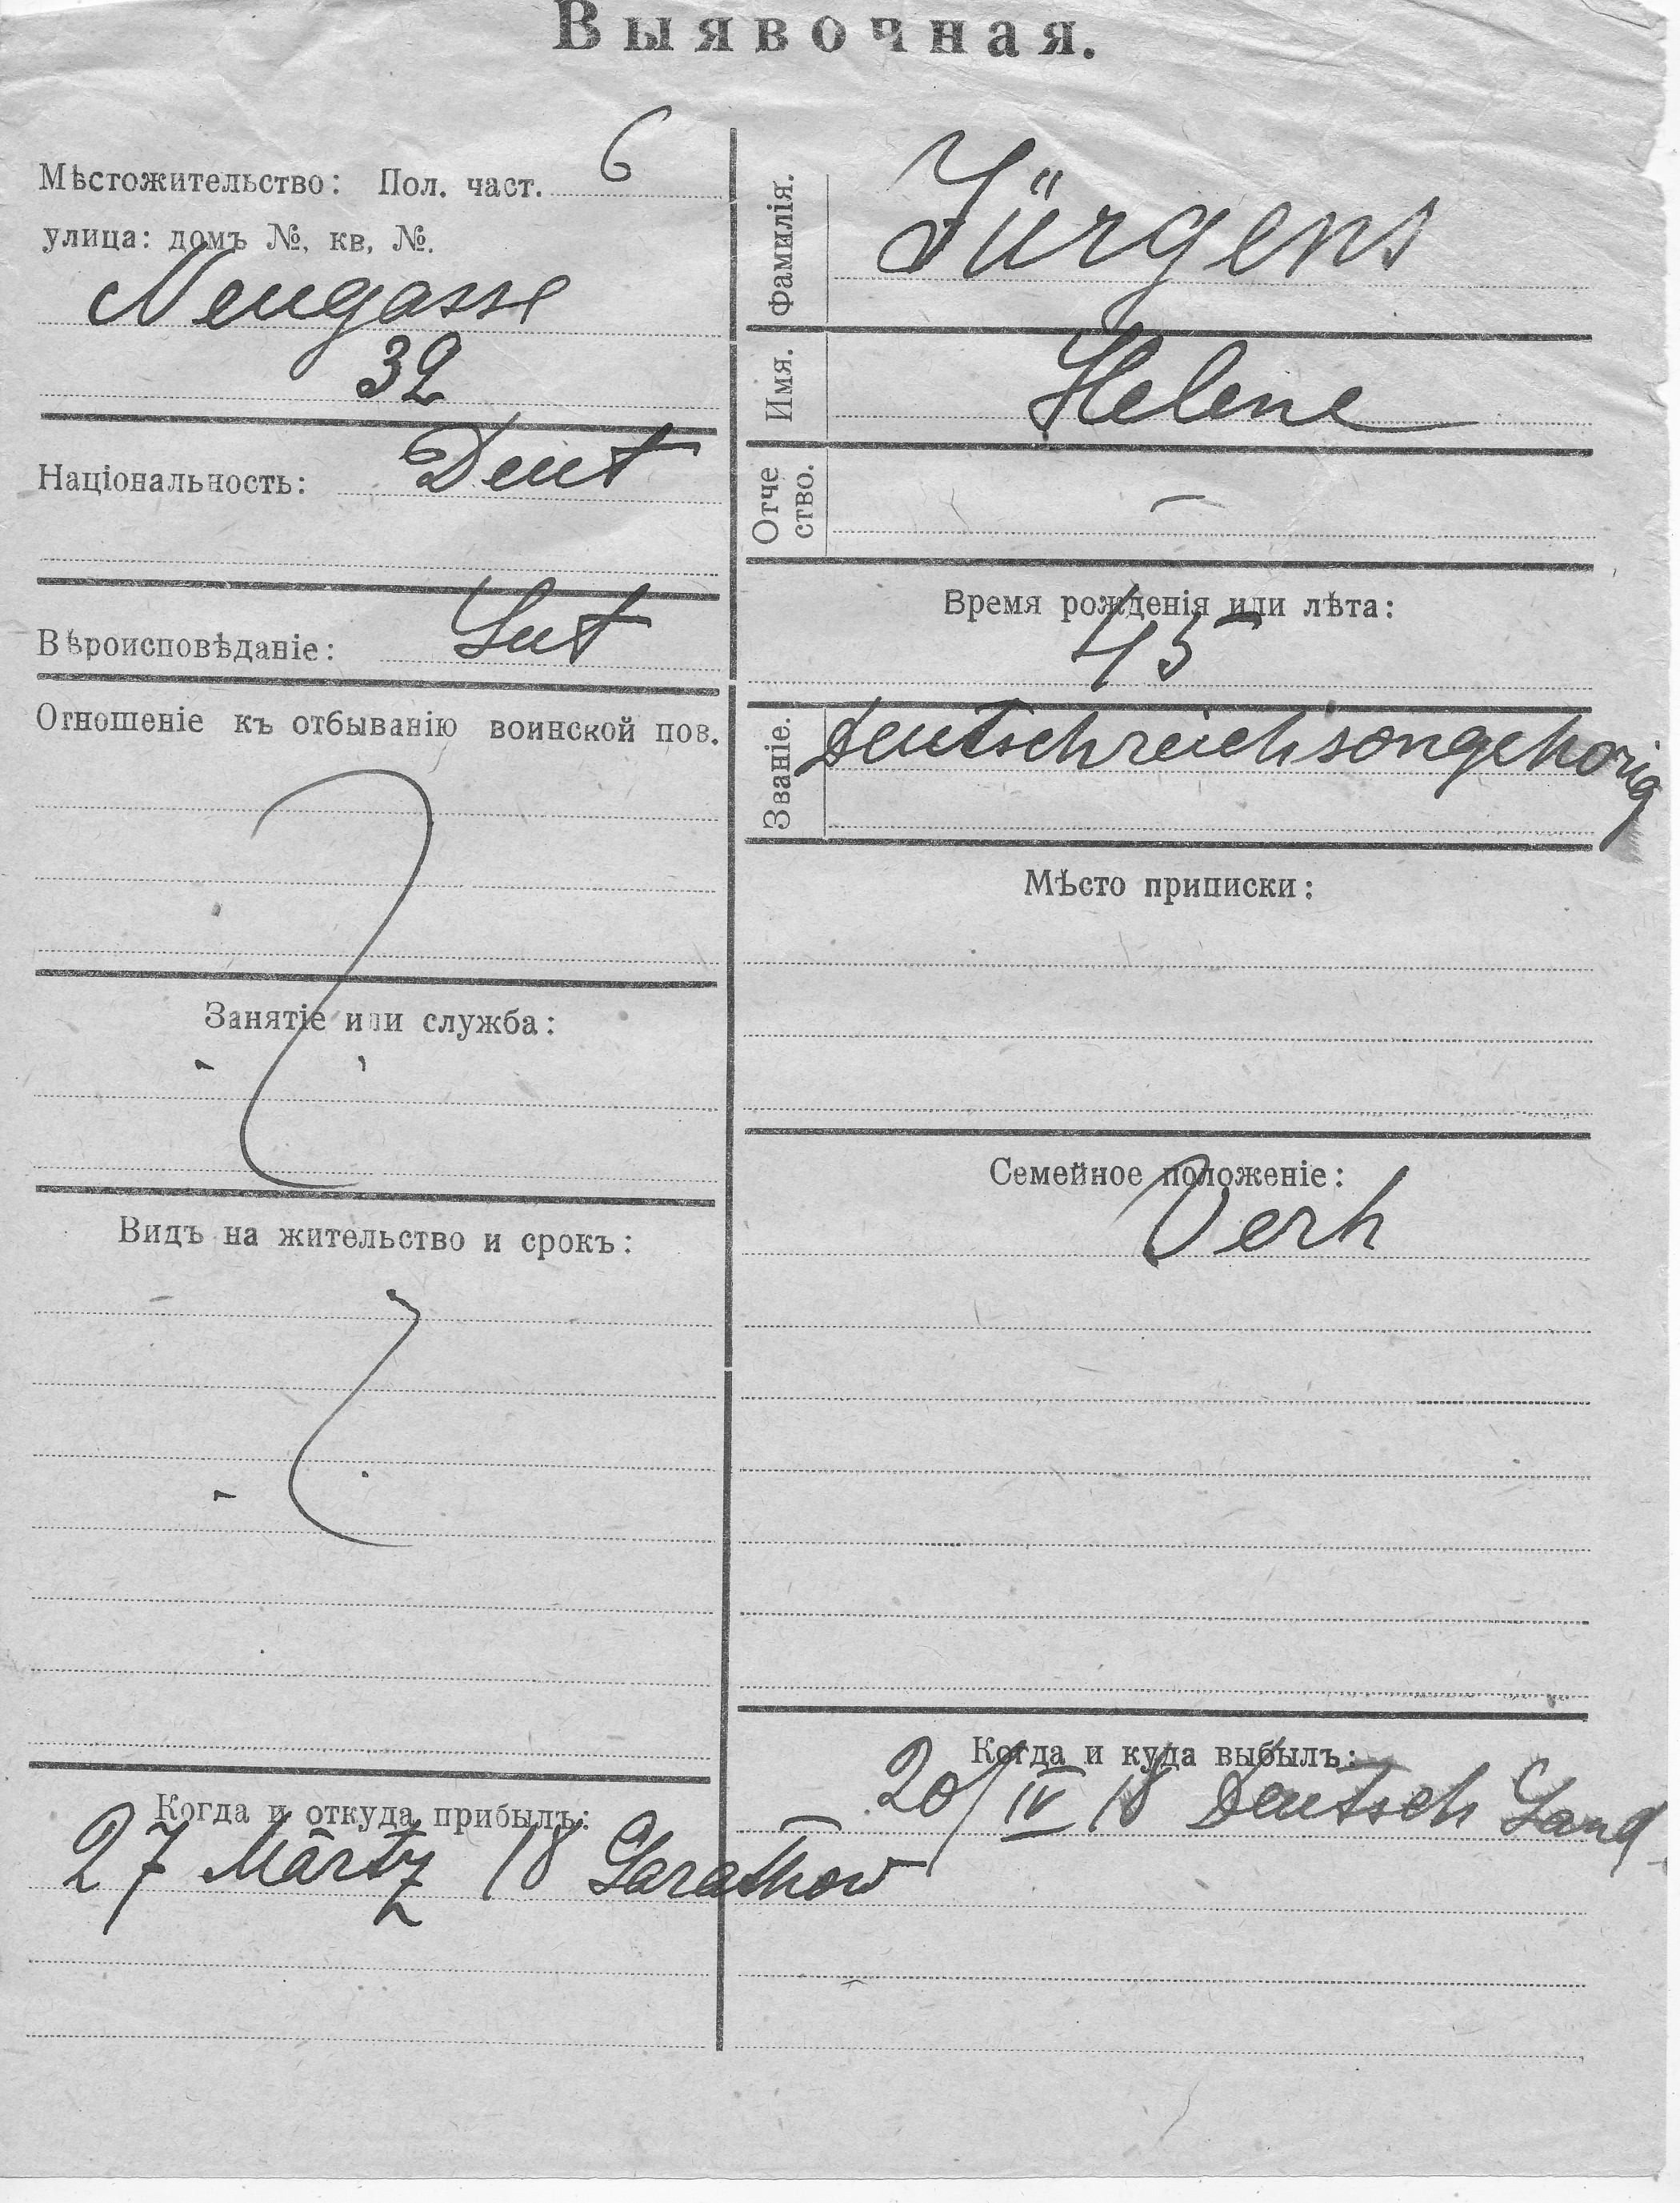 Выявочная.
Мѣстожительство: Пол. част. 6
улица: домъ №, кв, №.
Neugasse
32
Національность: Deut
Вѣроисповѣданіе: Lut
Отношеніе къ отбыванію воинской пов.
Занятіе или служба:
Видъ на жительство и срокъ:
Когда и откуда прибылъ:
27 Märtz 18 Sarathow
Фамилія. Jürgens
Имя. Helene
Отче
ство. —
Время рожденія или лѣта:
45
Званіе. Deutschreichsangehorig
Мѣсто приписки:
Семейное положеніе:
Verh
Когда и куда выбылъ:
20/IV 18 Deutsch Land